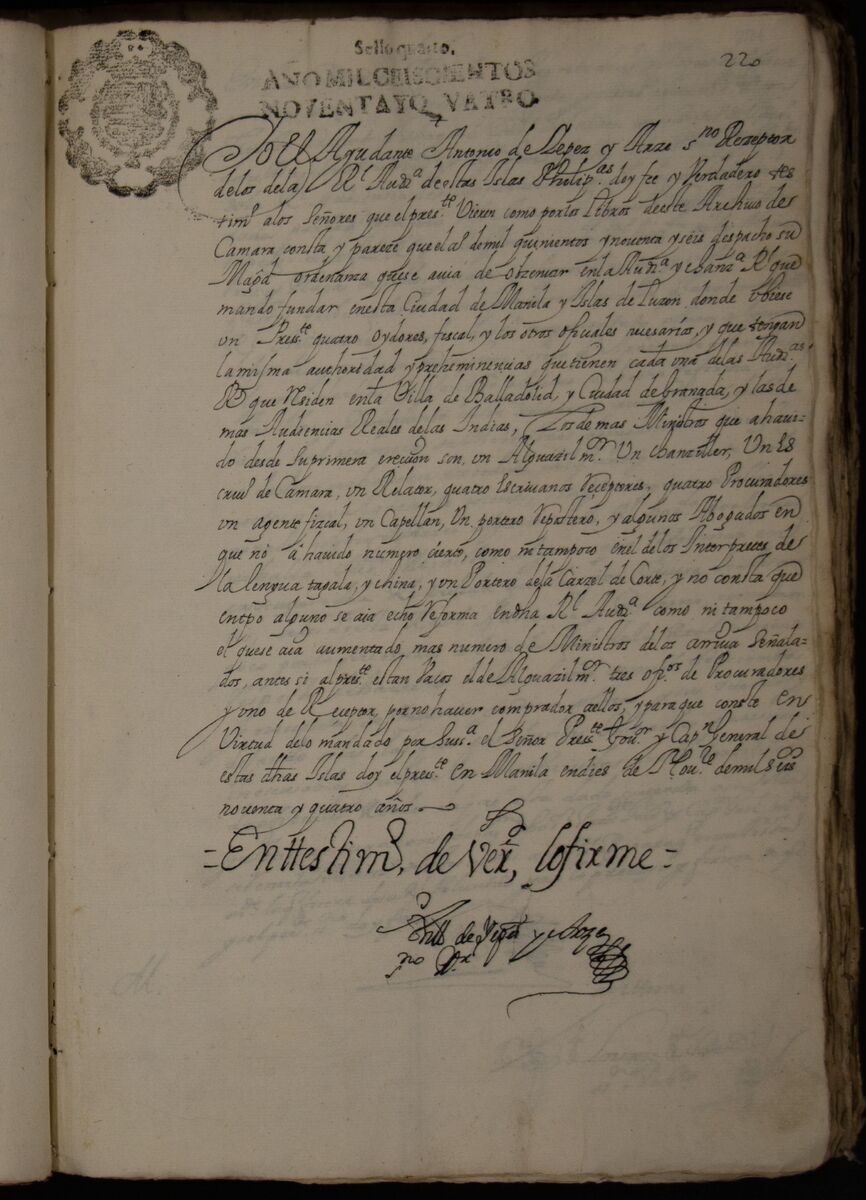 Sello quarto,
220
AÑO MIL CEISCIENTOS
NOVENTA YQVATRO
Yo el Ayudante Antonio de y Arze s.no Rezeptor
delos dela Rl Aud.a de estas Islas Philip.as doy fee y Verdadero tes
tim.o alos Señores que el pres.te Vieren como por los Libros deeste Archivo de
Camara consta y pareze que el a.o demil quinientos y noventa y seis despacho su
Mag.d ordenanza que se avia de observar enla Aud.a y chanz.a Rl que
mando fundar enesta Ciudad de Manila y Islas de Luzon donde vbiese
vn Pres.te quatro oydores, fiscal, y los otros oficiales nesesarios, y que tengan
la misma authoridad y preheminencias que tienen cada vna delas Aud.as
R.s que Residen enla Villa de Balladolid, y Ciudad de Granada, y las de
mas Audiencias Reales delas Indias, Los demas Ministros que a havi-
do desde su primera ereccion son, vn Alguazil m.or Vn chanziller, Vn Es
criu.o de Camara, vn Relator, quatro escriuanos Reçeptores, quatro Procuradores
vn agente fizcal, vn Capellan, Vn portero Repostero, y algunos Abogados en
que no á havido numero cierto, como ni tampoco enel delos Interpretes de
la lengua tagala, y china, y vn Portero dela Carzel de Corte, y no consta que
entpo alguno se aia echo Reforma endha Rl Aud.a como ni tampoco
el que se aia aumentado mas numero de Ministros delos arriva señala-
dos, antes si alpres.te estan Vacos el de Alguazil m.or tres ofi.os de Procuradores
y vno de Reçeptor, por no haver comprador aellos, y para que conste en
Virtud delo mandado por Suss.a el Señor Pres.te Gou.r y Cap.n General de
estas dhas Islas doy elpres.te en Manila endies de Nou.re demil seis
noventa y quatro años
= En ttestim.o de Ver.d, lo firme =
Antt.o de y Arze
s.no R.r